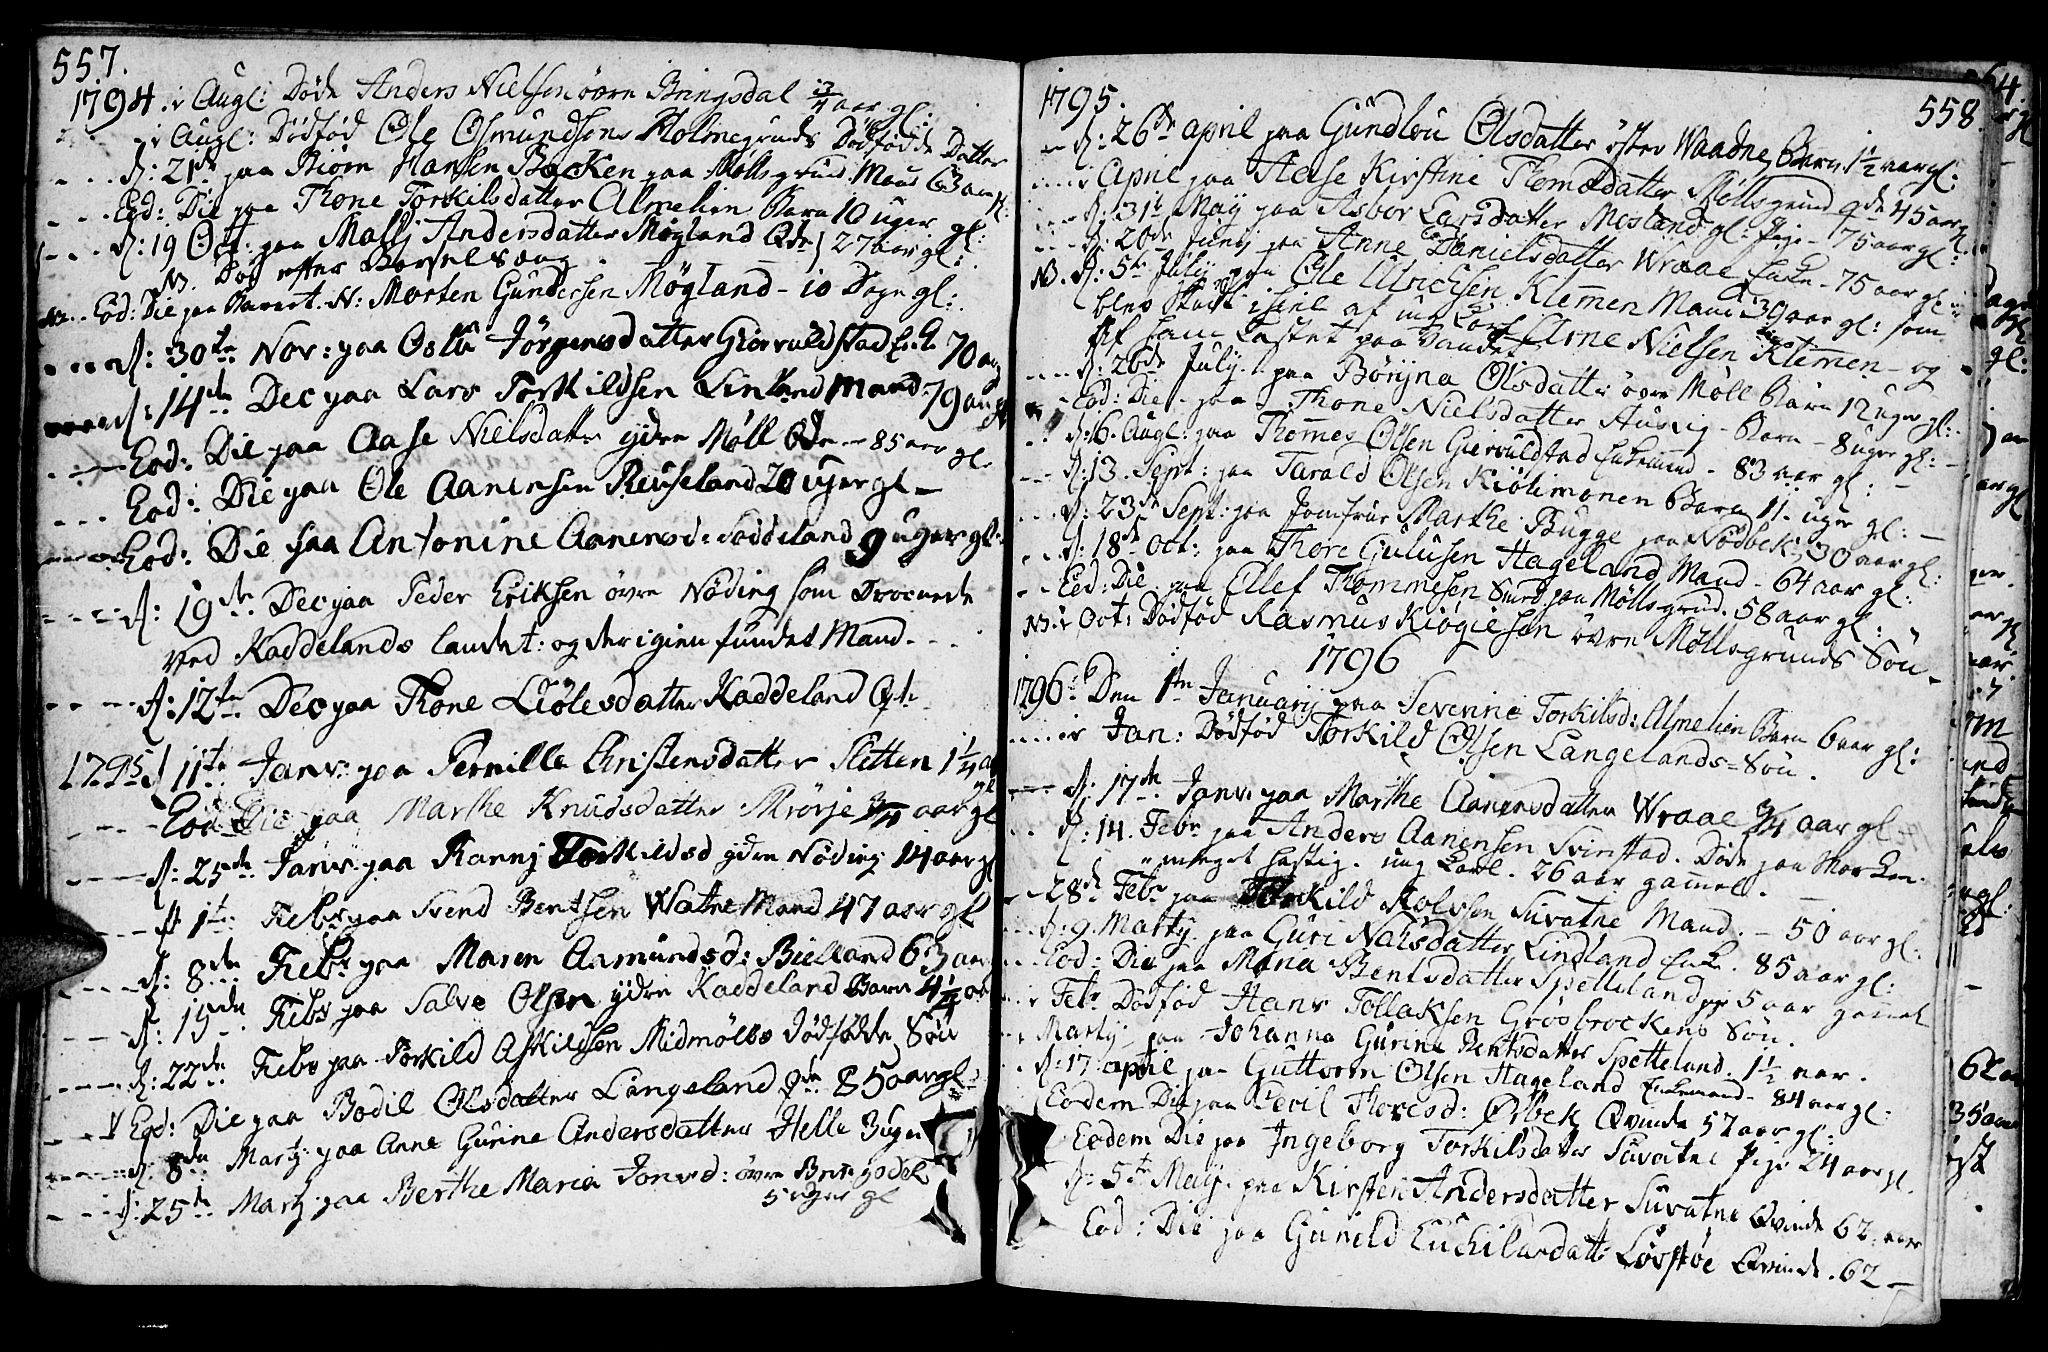 557.
1794. i Augl: Døde Anders Nielsen övre Bringsdal 3/4 aar gl:
i Augl: Dödfød Ole Osmundsens Holmegrunds Dödfödde Datter
d: 21de paa Biørn Hansen Backen paa Mølls grund Mand 63 aar
Eod: Die paa Thone Torkilsdatter Almelien Barn 10 uger gl:
d: 19 Oct: paa Mallj Andersdatter Møgland Qde 27 aar gl:
NB. Død efter Barselsæng.
Eod: Die paa Barnet N: Morten Gundersen Møgland - 10 Dage gl:
d: 30te Nov: paa Oslu Jørgensdatter Giervuldstad Enke 70 aar
d: 14de Dec paa Lars Torkildsen Linland Mand 79 aar gl
Eod: Die paa Aase Nielsdatter ydre Møll Qde - 85 aar gl.
Eod: Die paa Ole Aanensen Reuseland 20 uger gl -
Eod: Die paa Antonine Aanensd: Saddeland 9 uger gl.
d: 19de Dec paa Peder Eriksen övre Nöding som Drocnede
ved Kaddelands landet: og der igien funden Mand.
d: 12te Dec paa Thone Liölesdatter Kaddeland
1795 d 11te Janv: paa Pernille Christensdatter Sletten 1 1/4 aar gl
Eod: Die paa Marthe Knudsdatter 3/4 aar gl
d: 25de Janv: paa Rannj Torkildsd ydre Nöding 14 aar gl
d 1te Febr paa Svend Bentsen Watne Mand 47 aar gl
d: 8de Febr paa Maren Aamundsd: Bielland 63 aar
d: 15de Febr paa Salve Olsen ydre Kaddeland Barn 4 1/4 aar
d: 22de Febr paa Torkild Askildsen Midmölbs Dödfödde Sön
Eod: Die paa Bodil Olsdatter Langeland Qde 85 aar gl
d: 8de Martj paa Anne Gurine Andersdatter Helle 3 uger
d: 25de Martj paa Berthe Maria Jonsd: övre Bringsdal
5 uger gl
1795. 558.
d: 26de april paa Gundlou Olsdatter öster Waadne, Barn 1 1/2 aar gl:
i April paa Aelse Kirstine Thomasdatter Möllsgrund Qde 45 aar gl
d: 31te May paa Asbor Larsdatter Mosland gl: Pige - 75 aar gl:
d: 20de Junj paa Anne Danielsdatter Wraae Enke - 75 aar gl:
NB. d: 5te July paa Ole Ulrichsen Klemmen Mand 39 aar gl: som
blev skudt ihiel af ung Karl Arne Nielsen Klemmen - og
af ham kastet paa Vandet
d: 26de July paa Börgna Olsdatter övre Möll Barn 12 uger gl:
Eod: Die - paa Thone Nielsdatter Ausvig - Barn - 8 uger gl:
d: 6. Augl: paa Thommes Olsen Giervuldstad Enkemand - 83 aar gl:
d: 13. Sept: paa Tarald Olsen Kiölemonen Barn 11. uger gl:
d: 23de Sept: paa Jomfrue Marthe Bugge paa Nödbek, 30 aar gl:
d: 18de Oct: paa Thore Gulusen Hageland Mand - 64 aar gl:
Eod: Die paa Ellef Thommesen Smed paa Möllsgrund. 58 aar gl:
NB. i Oct: Dödfød Rasmus Kiögiesen övre Möllsgrunds Sön.
1796
1796: Den 1te Januarij paa Severine Torkilsd: Almelien Barn 6 aar gl:
i Jan: Dödfød Torkild Olsen Langelands = Sön.
d: 17de Janv: paa Marthe Aanensdatter Wraae 3/4 aar gl -
d: 14. Febr paa Anders Aanensen Svinstad. Døde paa Marken
meget hastig. ung Karl. 26 aar gammel.
28de Febr paa Torkild Rolvsen Suvatne Mand. - 50 aar gl:
d: 9. Martij paa Guri Nahsdatter Lindland Enke. 85 aar gl:
Eod: Die paa Maria Bentsdatter Spetteland pige 5 aar gamel
i Febr Dödfød Hans Tollaksen Grösbrockens Sön.
Martij paa Johanna Gurine Bentsdatter Spetteland. 1 1/2 aar.
d: 17 april paa Guttorm Olsen Hageland Enkemand - 84 aar gl:
Eodem Die paa Cecil Thoresd: Ørbek Qvinde 57 aar gl:
Eodem Die paa Ingeborg Torkilsdatter Suvatne Pige 24 aar gl.
d: 5te Maij. paa Kirsten Andersdatter Suvatne Qvinde 62 aar
Eod: Die paa Gunild Euchilasdatt: Lövstöe Qvinde. 62 -